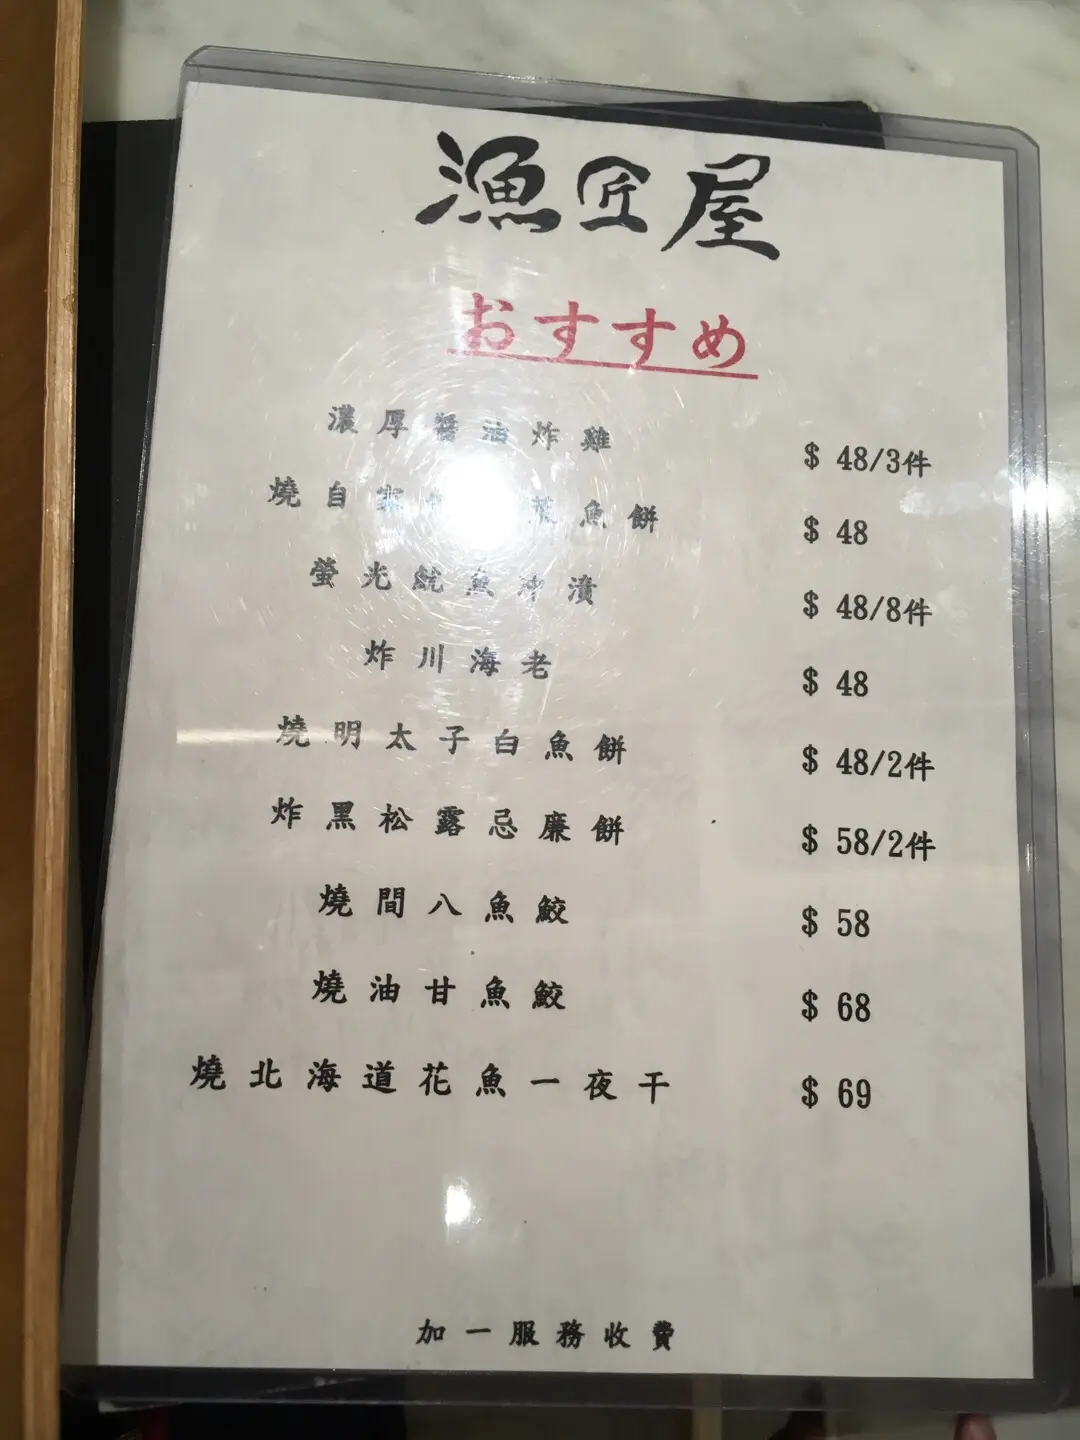 漁匠屋
おすすめ
濃厚醬油炸雞 $ 48/3件
燒自家 菜魚餅 $ 48
螢光魷魚沖漬 $ 48/8件
炸川海老 $ 48
燒明太子白魚餅 $ 48/2件
炸黑松露忌廉餅 $ 58/2件
燒間八魚鮫 $ 58
燒油甘魚鮫 $ 68
燒北海道花魚一夜干 $ 69
加一服務收費